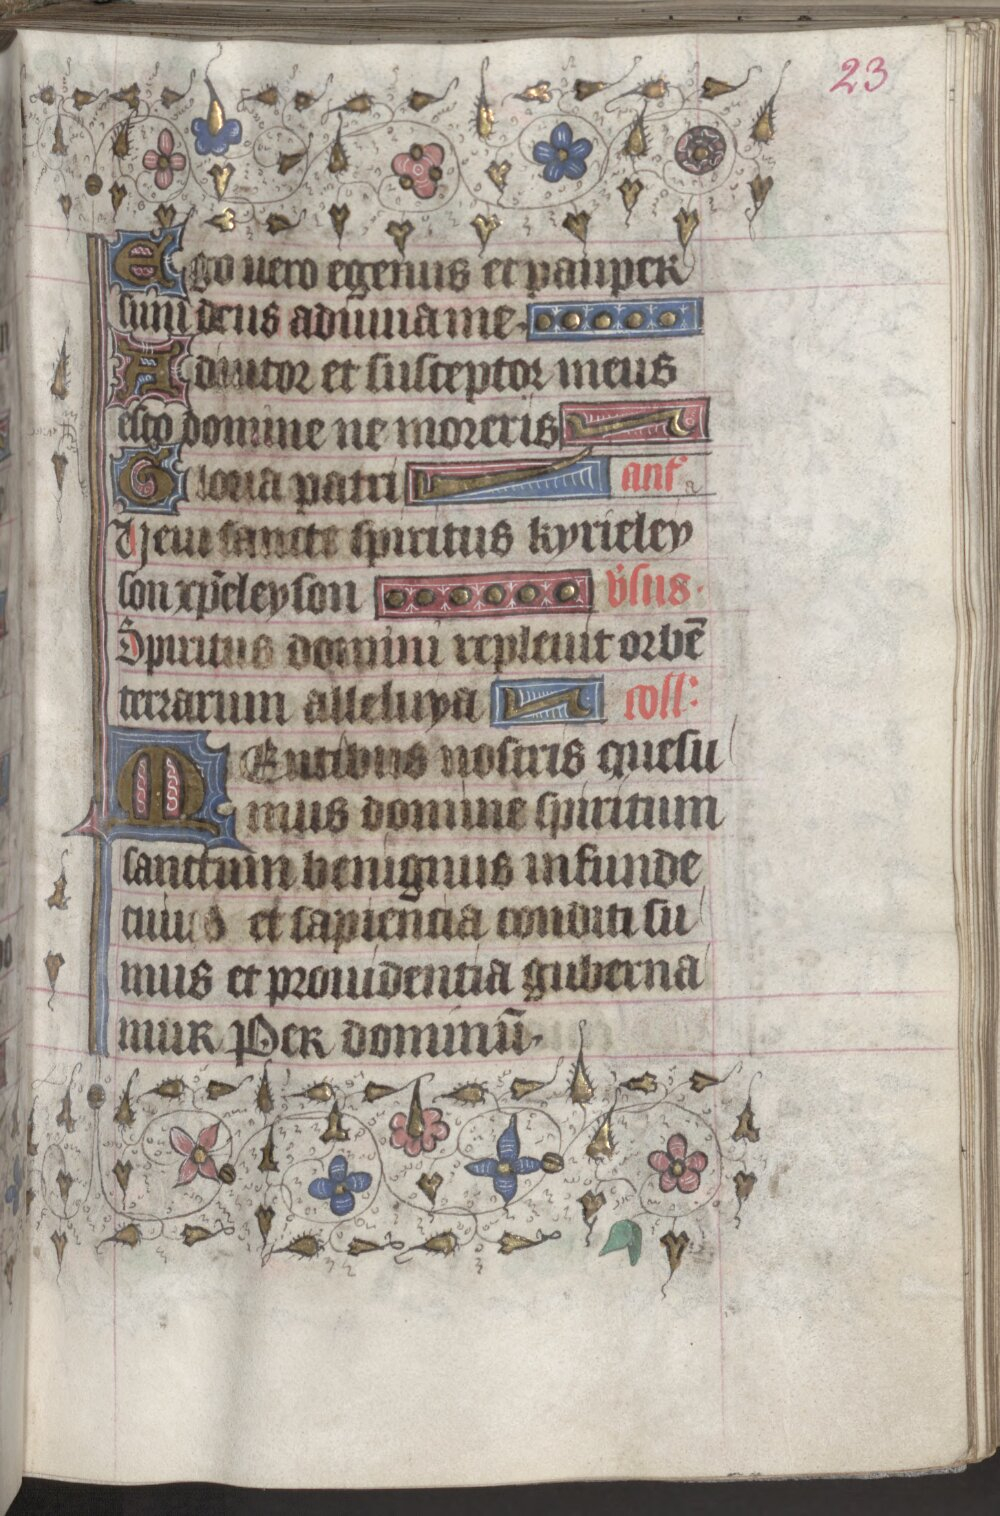 23
Ego uero egenus et pauper
sum deus adiuua me.
Adiutor et susceptor meus
esto domine ne moreris
Gloria patri ant̄
Veni sancte spiritus kyrieley
son xp̄eleyson v̄sus.
Spiritus domini repleuit orbē
terrarum alleluya coll:
MEntibus nostris quesu
mus domine spiritum
sanctum benignus infunde
cuius et sapiencia conditi su
mus et prouidentia guberna
mur Per dominū.